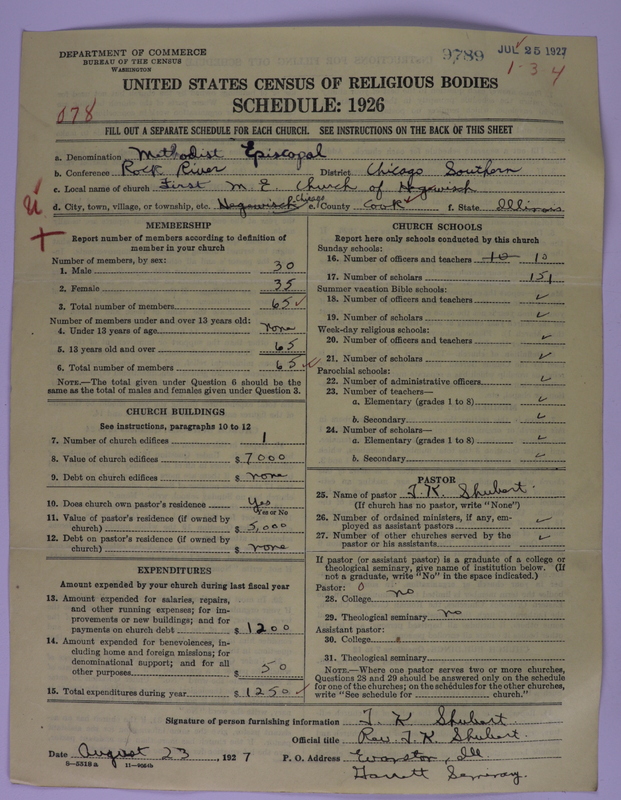 DEPARTMENT OF COMMERCE
BUREAU OF THE CENSUS
WASHINGTON
9789 JUL 25 1927
1-3 4
UNITED STATES CENSUS OF RELIGIOUS BODIES
SCHEDULE: 1926
078
FILL OUT A SEPARATE SCHEDULE FOR EACH CHURCH. SEE INSTRUCTIONS ON THE BACK OF THIS SHEET
a. Denomination Methodist Episcopal
b. Conference Rock River District Chicago Southern
c. Local name of church First M. E. Church of Hegewisch
d. City, town, village, or township, etc. Hegewisch Chicago e. County Cook f. State Illinois
MEMBERSHIP
Report number of members according to definition of member in your church
Number of members, by sex:
1. Male 30
2. Female 35
3. Total number of members 65 ✓
Number of members under and over 13 years old:
4. Under 13 years of age None
5. 13 years old and over 65
6. Total number of members 65 ✓
NOTE.—The total given under Question 6 should be the same as the total of males and females given under Question 3.
CHURCH BUILDINGS
See instructions, paragraphs 10 to 12
7. Number of church edifices 1
8. Value of church edifices $ 7000
9. Debt on church edifices $ none
10. Does church own pastor's residence Yes
Yes or No
11. Value of pastor's residence (if owned by
church) $ 5,000
12. Debt on pastor's residence (if owned by
church) $ none
EXPENDITURES
Amount expended by your church during last fiscal year
13. Amount expended for salaries, repairs,
and other running expenses; for im-
provements or new buildings; and for
payments on church debt $ 1200
14. Amount expended for benevolences, in-
cluding home and foreign missions; for
denominational support; and for all
other purposes $ 50
15. Total expenditures during year $ 1250 ✓
CHURCH SCHOOLS
Report here only schools conducted by this church
Sunday schools:
16. Number of officers and teachers 10 10
17. Number of scholars 151
Summer vacation Bible schools:
18. Number of officers and teachers ✓
19. Number of scholars ✓
Week-day religious schools:
20. Number of officers and teachers ✓
21. Number of scholars ✓
Parochial schools:
22. Number of administrative officers ✓
23. Number of teachers—
a. Elementary (grades 1 to 8) ✓
b. Secondary ✓
24. Number of scholars—
a. Elementary (grades 1 to 8) ✓
b. Secondary ✓
PASTOR
25. Name of pastor T. K. Shubert
(If church has no pastor, write "None")
26. Number of ordained ministers, if any, em-
ployed as assistant pastors ✓
27. Number of other churches served by the
pastor or his assistants ✓
If pastor (or assistant pastor) is a graduate of a college or
theological seminary, give name of institution below. (If
not a graduate, write "No" in the space indicated.)
Pastor:
28. College no
29. Theological seminary no
Assistant pastor:
30. College
31. Theological seminary
NOTE.—Where one pastor serves two or more churches,
Questions 28 and 29 should be answered only on the schedule
for one of the churches; on the schedules for the other churches,
write "See schedule for church."
Signature of person furnishing information T. K Shubert
Official title Rev. T. K. Shubert.
Date August 23, 1927 P. O. Address Evanston, Ill
Garrett Seminary.
8—5318 a 11—9054b